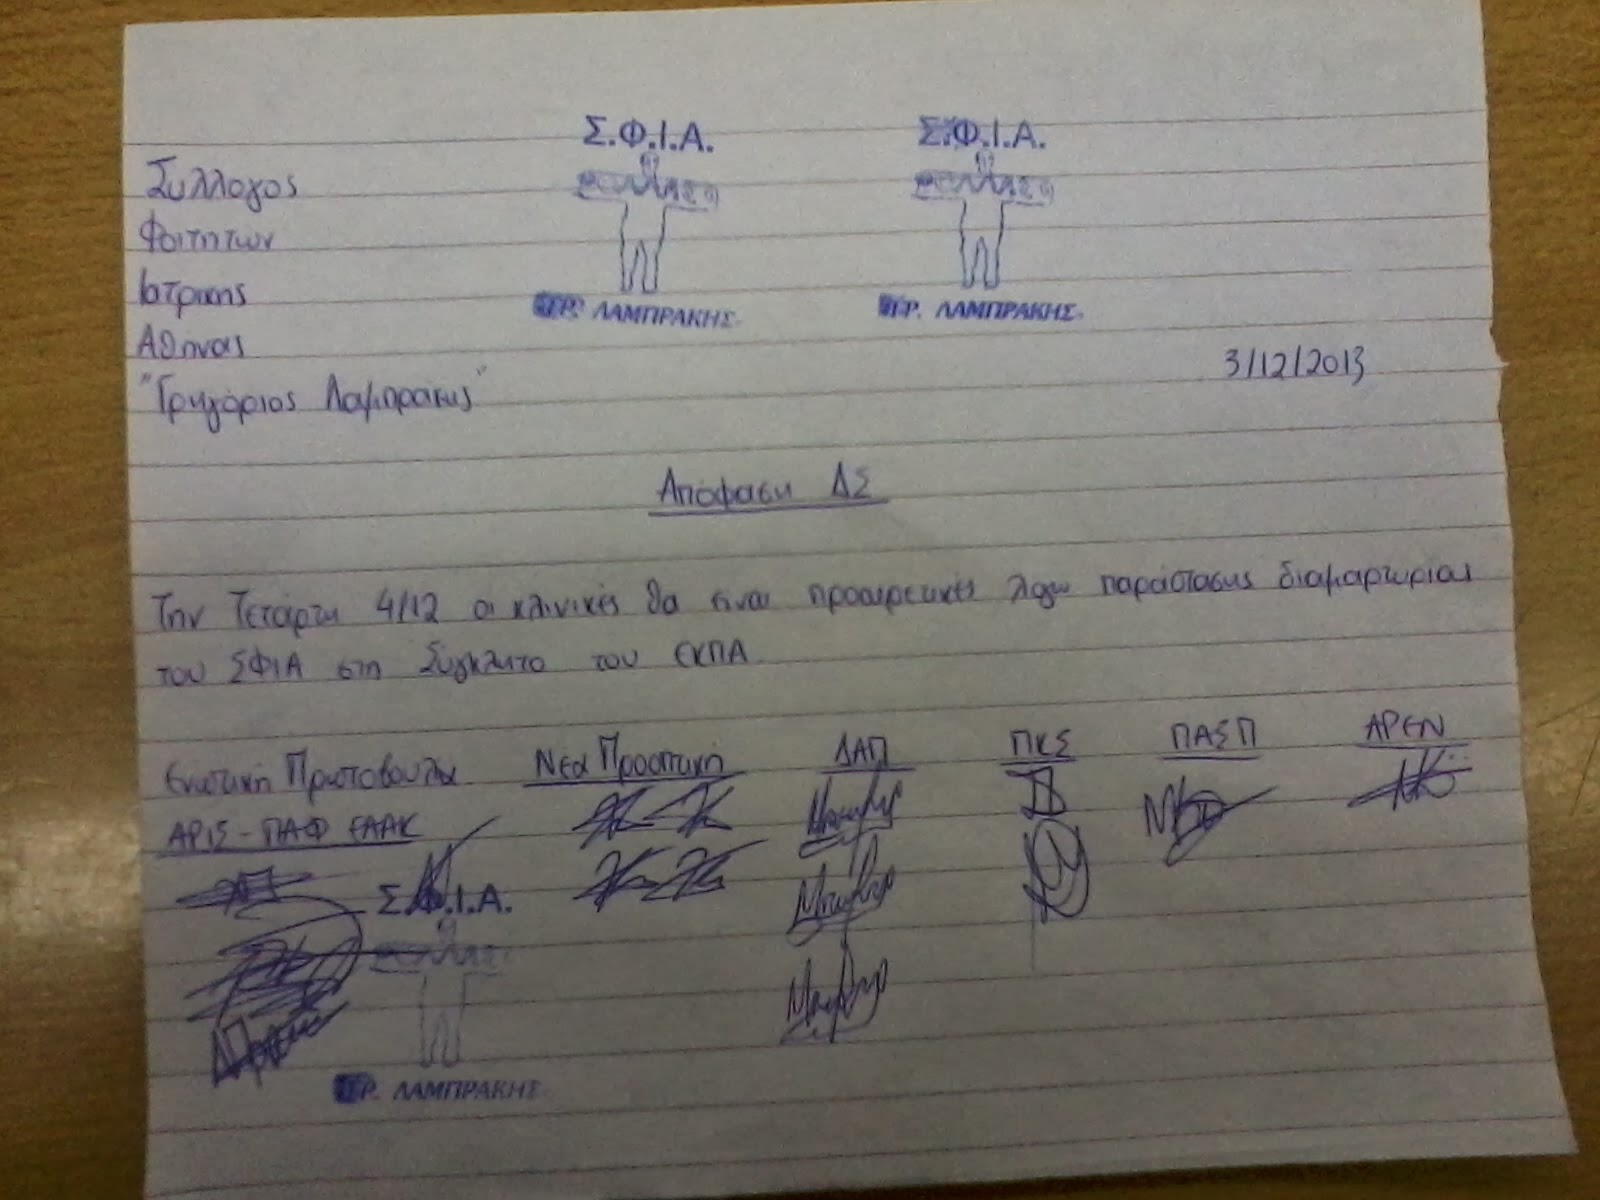 Σ.Φ.Ι.Α. Σ.Φ.Ι.Α.
Σύλλογος
Φοιτητων
Ιατρικης
Αθηνας
"Γρηγόριος Λαμπράκης"
ΓΡ. ΛΑΜΠΡΑΚΗΣ. ΓΡ. ΛΑΜΠΡΑΚΗΣ.
3/12/2013
Απόφαση ΔΣ
Την Τετάρτη 4/12 οι κλινικές θα ειναι προαιρετικές λογω παράστασης διαμαρτυριας
του ΣΦΙΑ στη Σύγκλητο του ΕΚΠΑ
Ενωτική Πρωτοβουλια Νέα Προοπτική ΔΑΠ ΠΚΣ ΠΑΣΠ ΑΡΕΝ
ΑΡΙΣ-ΠΑΦ ΕΑΑΚ
Σ.Φ.Ι.Α.
ΓΡ. ΛΑΜΠΡΑΚΗΣ